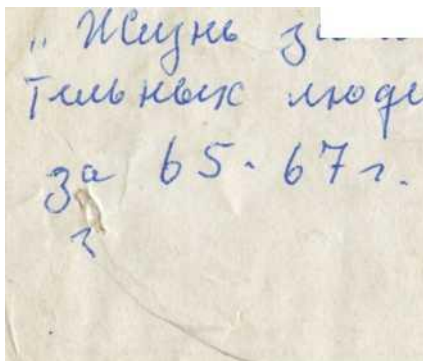 „Жизнь за
тельных люде
за 65-67 г.